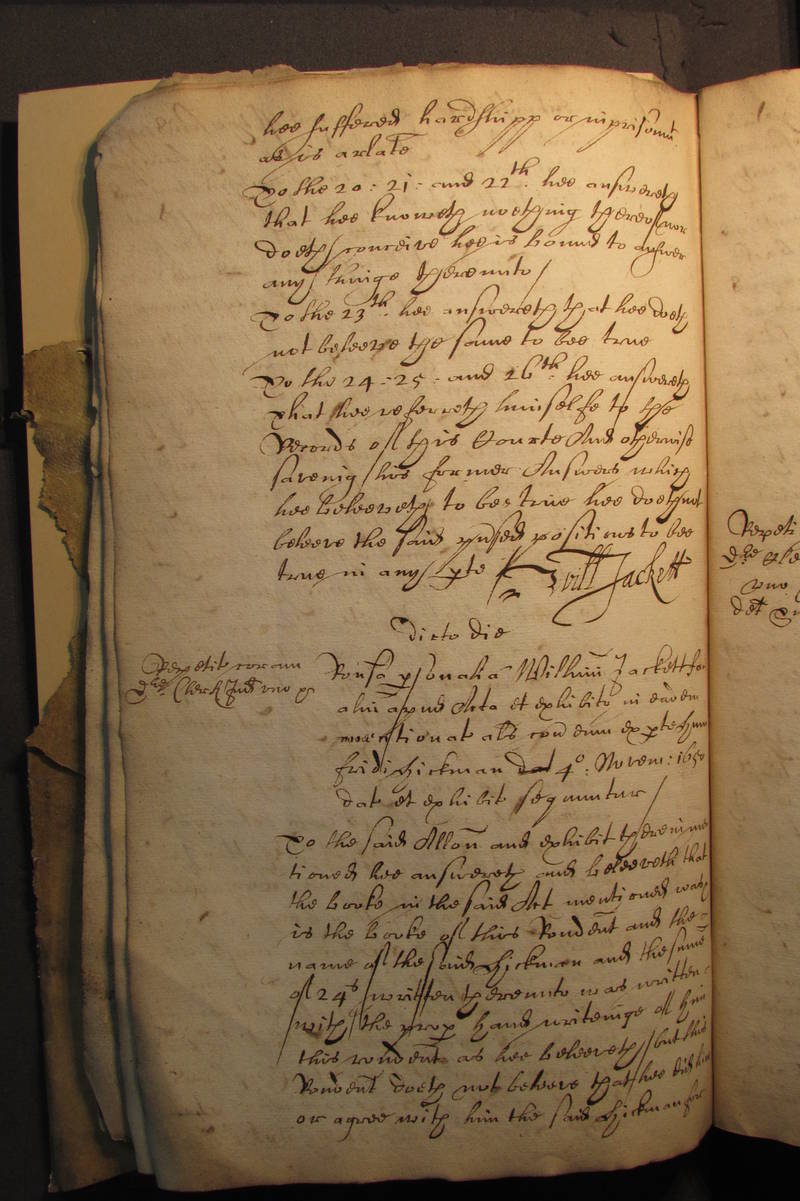 hee suffered hardshipp or imprisonmt
as is arlate
To the 20: 21: and 22th. hee answereth
that hee knoweth noething thereof nor
doeth conceive hee is bound to answer
any thinge thereunto /
To the 23th. hee answereth that hee doeth
not beleeve the same to bee true
To the 24:-25:- and 26th. hee answereth
that hee referreth himselfe to the
Records of this Courte And otherwise
saveing his former Answers which
hee beleeveth to bee true hee doeth not
beleeve the said positions to bee
true in any pte / Will Jackett
Dicto die
Repetit coram
Dre Clerk
Ronsa psonalia Willimi Jackett
alui apud Acta et exhibito in eadem
mentionat als ex pte hum
fridi Hickman dat 4o. Novem: 1650
dat et exhibit sequuntur /
To the said Allon and exhibit therein men
tioned hee answereth and beleeveth that
the booke in the said Act mentioned
is the booke of this Rondent and the
name of the said Hickman and the summe
of 24s written thereunto was written
with the prop hand writeinge of him
this rondent as hee beleeveth but this
Rondent doeth not beleeve that hee did
or agree with him the said Hickman for
Repeti
Dre Cle
uno
det